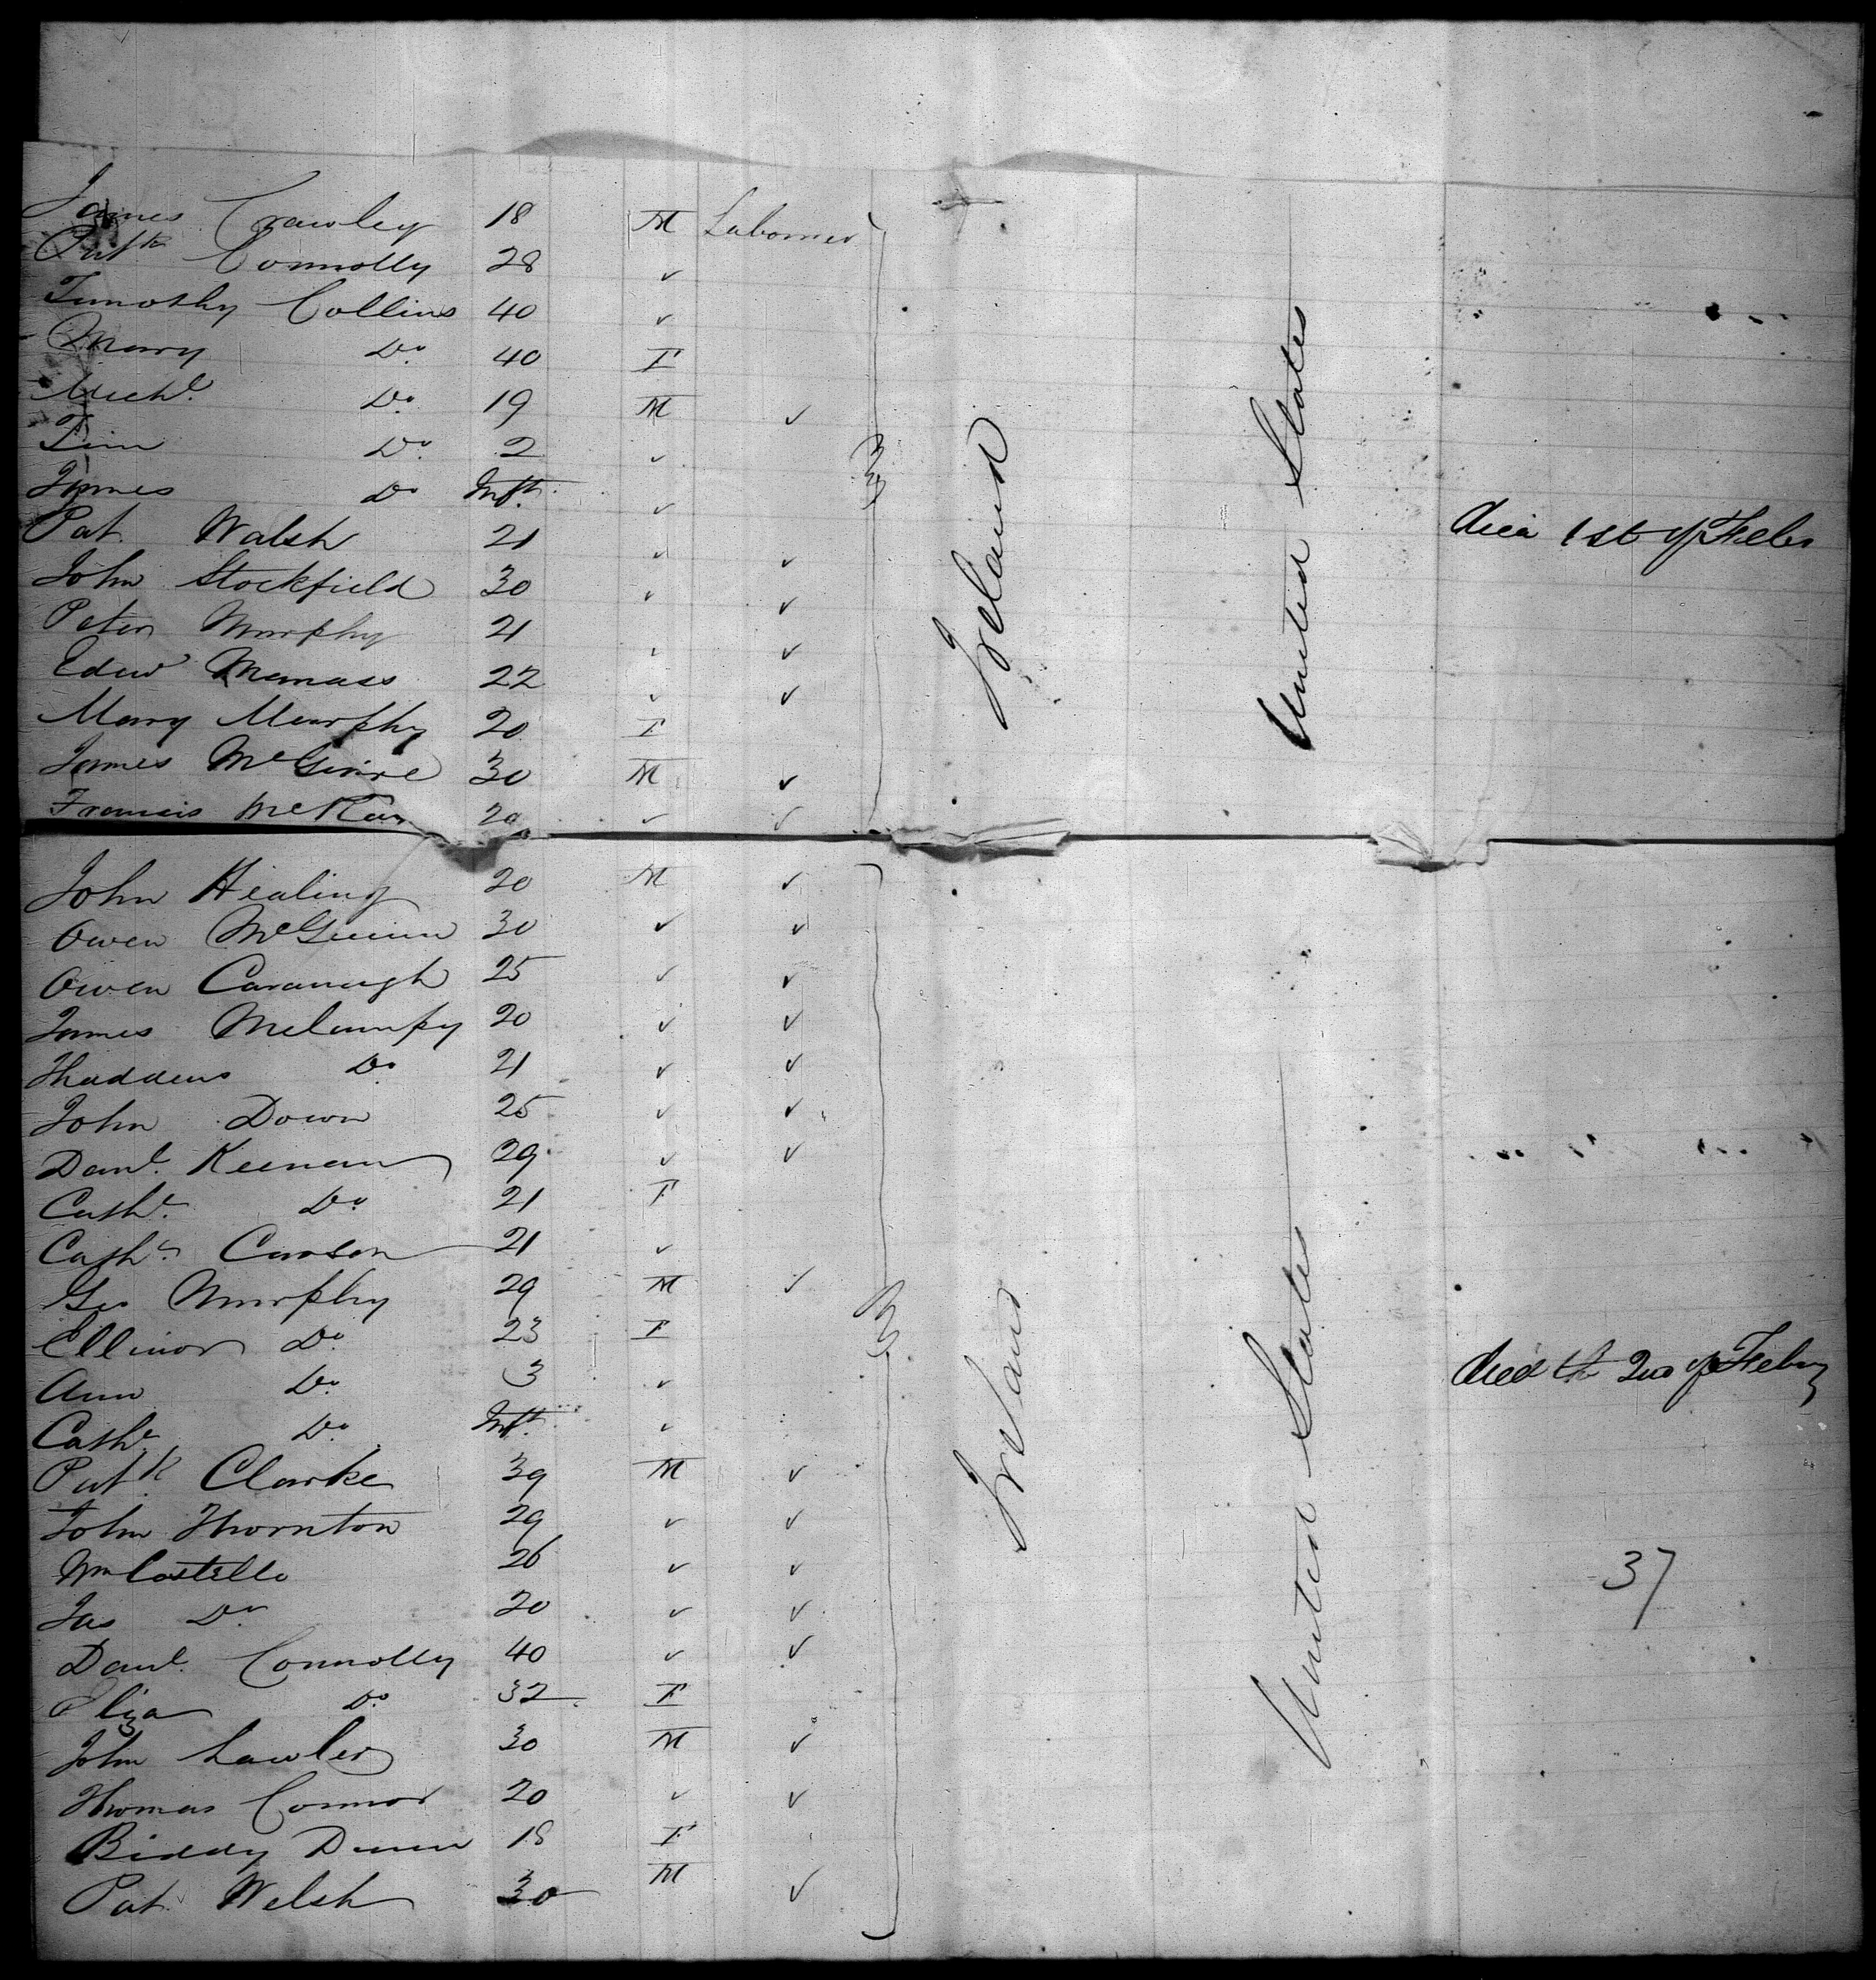 James Crawley 18 M Labourer
Patk Connolly 28 ✓
Timothy Collins 40 ✓
Mary Do. 40 F
Michl. Do. 19 M ✓
Tim Do. 2 ✓
James Do Inft. ✓ died 1st of Feby
Pat. Walsh 21 ✓ ✓
John Stockfield 30 ✓ ✓
Peter Murphy 21 ✓ ✓
Edwd Manass 22 ✓ ✓
Mary Murphy 20 F
James McGuire 30 M ✓
Francis 20 ✓ ✓
Ireland
United States
John Healing 20 M ✓
Owen McGuinn 30 ✓ ✓
Owen Cavanaugh 25 ✓ ✓
James 20 ✓ ✓
Thaddeus Do. 21 ✓ ✓
John Down 25 ✓ ✓
Danl. Keenan 29 ✓ ✓
Cathe. Do. 21 F
Cathe. Carson 21 ✓
Geo Murphy 29 M ✓
Ellinor Do. 23 F
Ann Do. 3 ✓
Cathe. Do. Inft. ✓ died the 2nd of Feby
Patk. Clarke 39 M ✓
John Thornton 29 ✓ ✓
Wm Costello 26 ✓ ✓
Jas Do. 20 ✓ ✓
Danl. Connolly 40 ✓ ✓
Eliza Do. 32 F
John Lawler 30 M ✓
Thomas Connor 20 ✓ ✓
Biddy Dunn 18 F
Pat. Welsh 30 M ✓
Ireland
United States
37